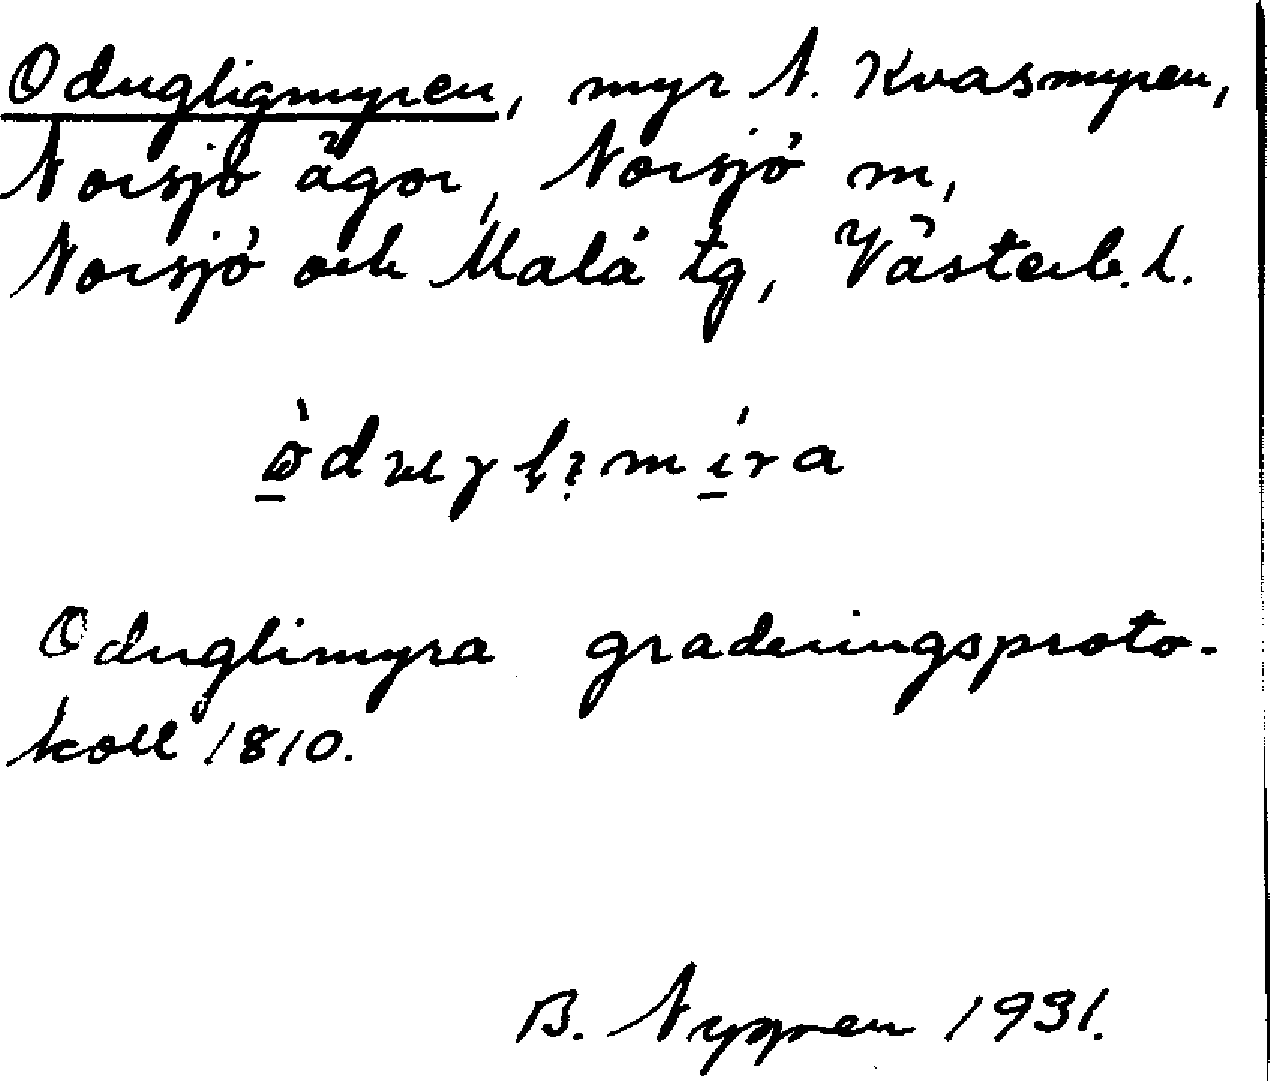 Odugligmyren, myr N. Kvasmyren,
Norsjö ägor, Norsjö sn,
Norsjö och Malå tg, Västerb. l.
Oduglimyra graderingsproto-
koll 1810.
B. Nygren 1931.